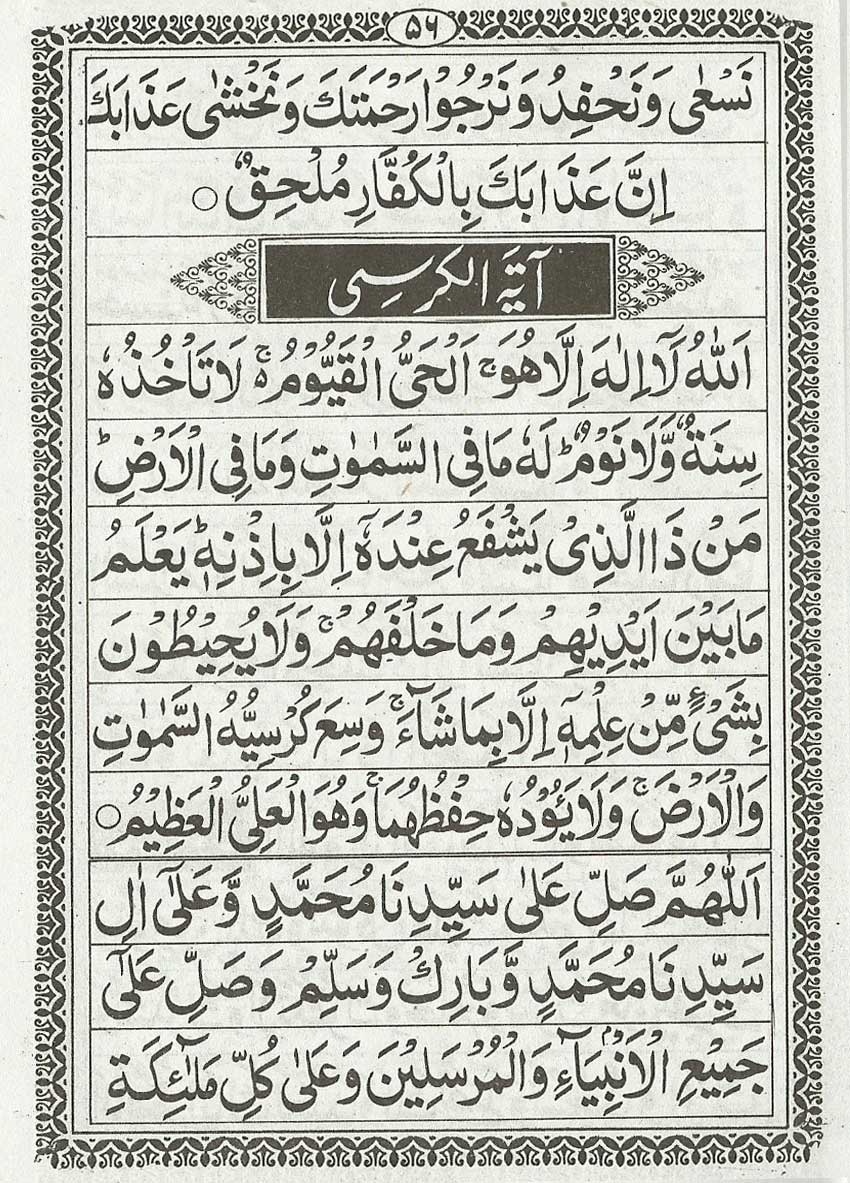 ۵۶
نَسْعٰى وَنَحْفِدُ وَنَرْجُوْا رَحْمَتَكَ وَنَخْشٰى عَذَابَكَ
اِنَّ عَذَابَكَ بِالْكُفَّارِ مُلْحِقٌ ○
آیۃ الکرسی
اَللّٰهُ لَآ اِلٰهَ اِلَّا هُوَ ۚ اَلْحَىُّ الْقَيُّوْمُ ۚ لَا تَاْخُذُهٗ
سِنَةٌ وَّلَا نَوْمٌ ؕ لَهٗ مَا فِى السَّمٰوٰتِ وَمَا فِى الْاَرْضِ ؕ
مَنْ ذَا الَّذِىْ يَشْفَعُ عِنْدَهٗٓ اِلَّا بِاِذْنِهٖ ؕ يَعْلَمُ
مَا بَيْنَ اَيْدِيْهِمْ وَمَا خَلْفَهُمْ ۚ وَلَا يُحِيْطُوْنَ
بِشَىْءٍ مِّنْ عِلْمِهٖٓ اِلَّا بِمَا شَآءَ ۚ وَسِعَ كُرْسِيُّهُ السَّمٰوٰتِ
وَالْاَرْضَ ۚ وَلَا يَئُوْدُهٗ حِفْظُهُمَا ۚ وَهُوَ الْعَلِىُّ الْعَظِيْمُ ○
اَللّٰهُمَّ صَلِّ عَلٰى سَيِّدِنَا مُحَمَّدٍ وَّعَلٰٓى اٰلِ
سَيِّدِنَا مُحَمَّدٍ وَّبَارِكْ وَسَلِّمْ وَصَلِّ عَلٰى
جَمِيْعِ الْاَنْبِيَآءِ وَالْمُرْسَلِيْنَ وَعَلٰى كُلِّ مَلٰٓئِكَةِ